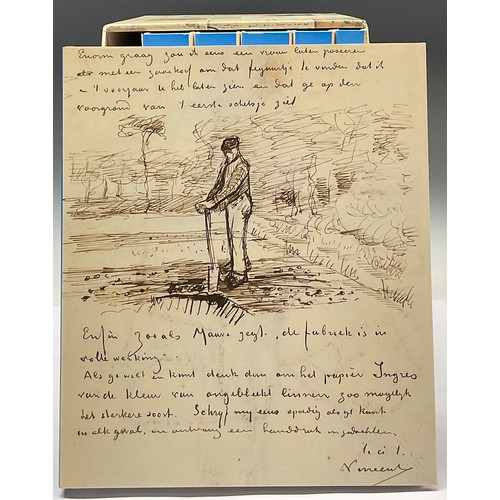 Enorm graag zou ik eens een vrouw laten poseeren
met een zaaikorf om dat figuurtje te vinden dat ik
in 't voorjaar U heb laten zien en dat ge op den
voorgrond van 't eerste schetsje ziet
Enfin zooals Mauve zegt, de fabriek is in
volle werking.
Als ge wilt en kunt denk dan om het papier Ingres
van de kleur van ongebleekt linnen zoo mogelijk
het sterkere soort. Schrijf mij eens spoedig als ge kunt
in elk geval, en ontvang een handdruk in gedachten
t. à t.
Vincent